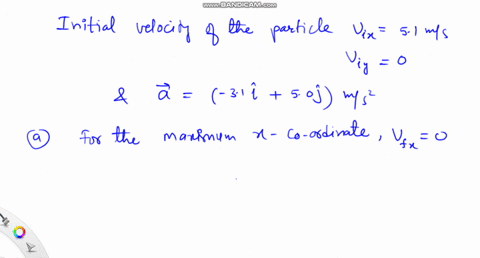 WWW.BANDICAM.COM
Initial velocity of the particle V_ix = 5.1 m/s
V_iy = 0
& a⃗ = (-3.1 î + 5.0 ĵ) m/s²
(a) For the maximum x-co-ordinate, V_fx = 0